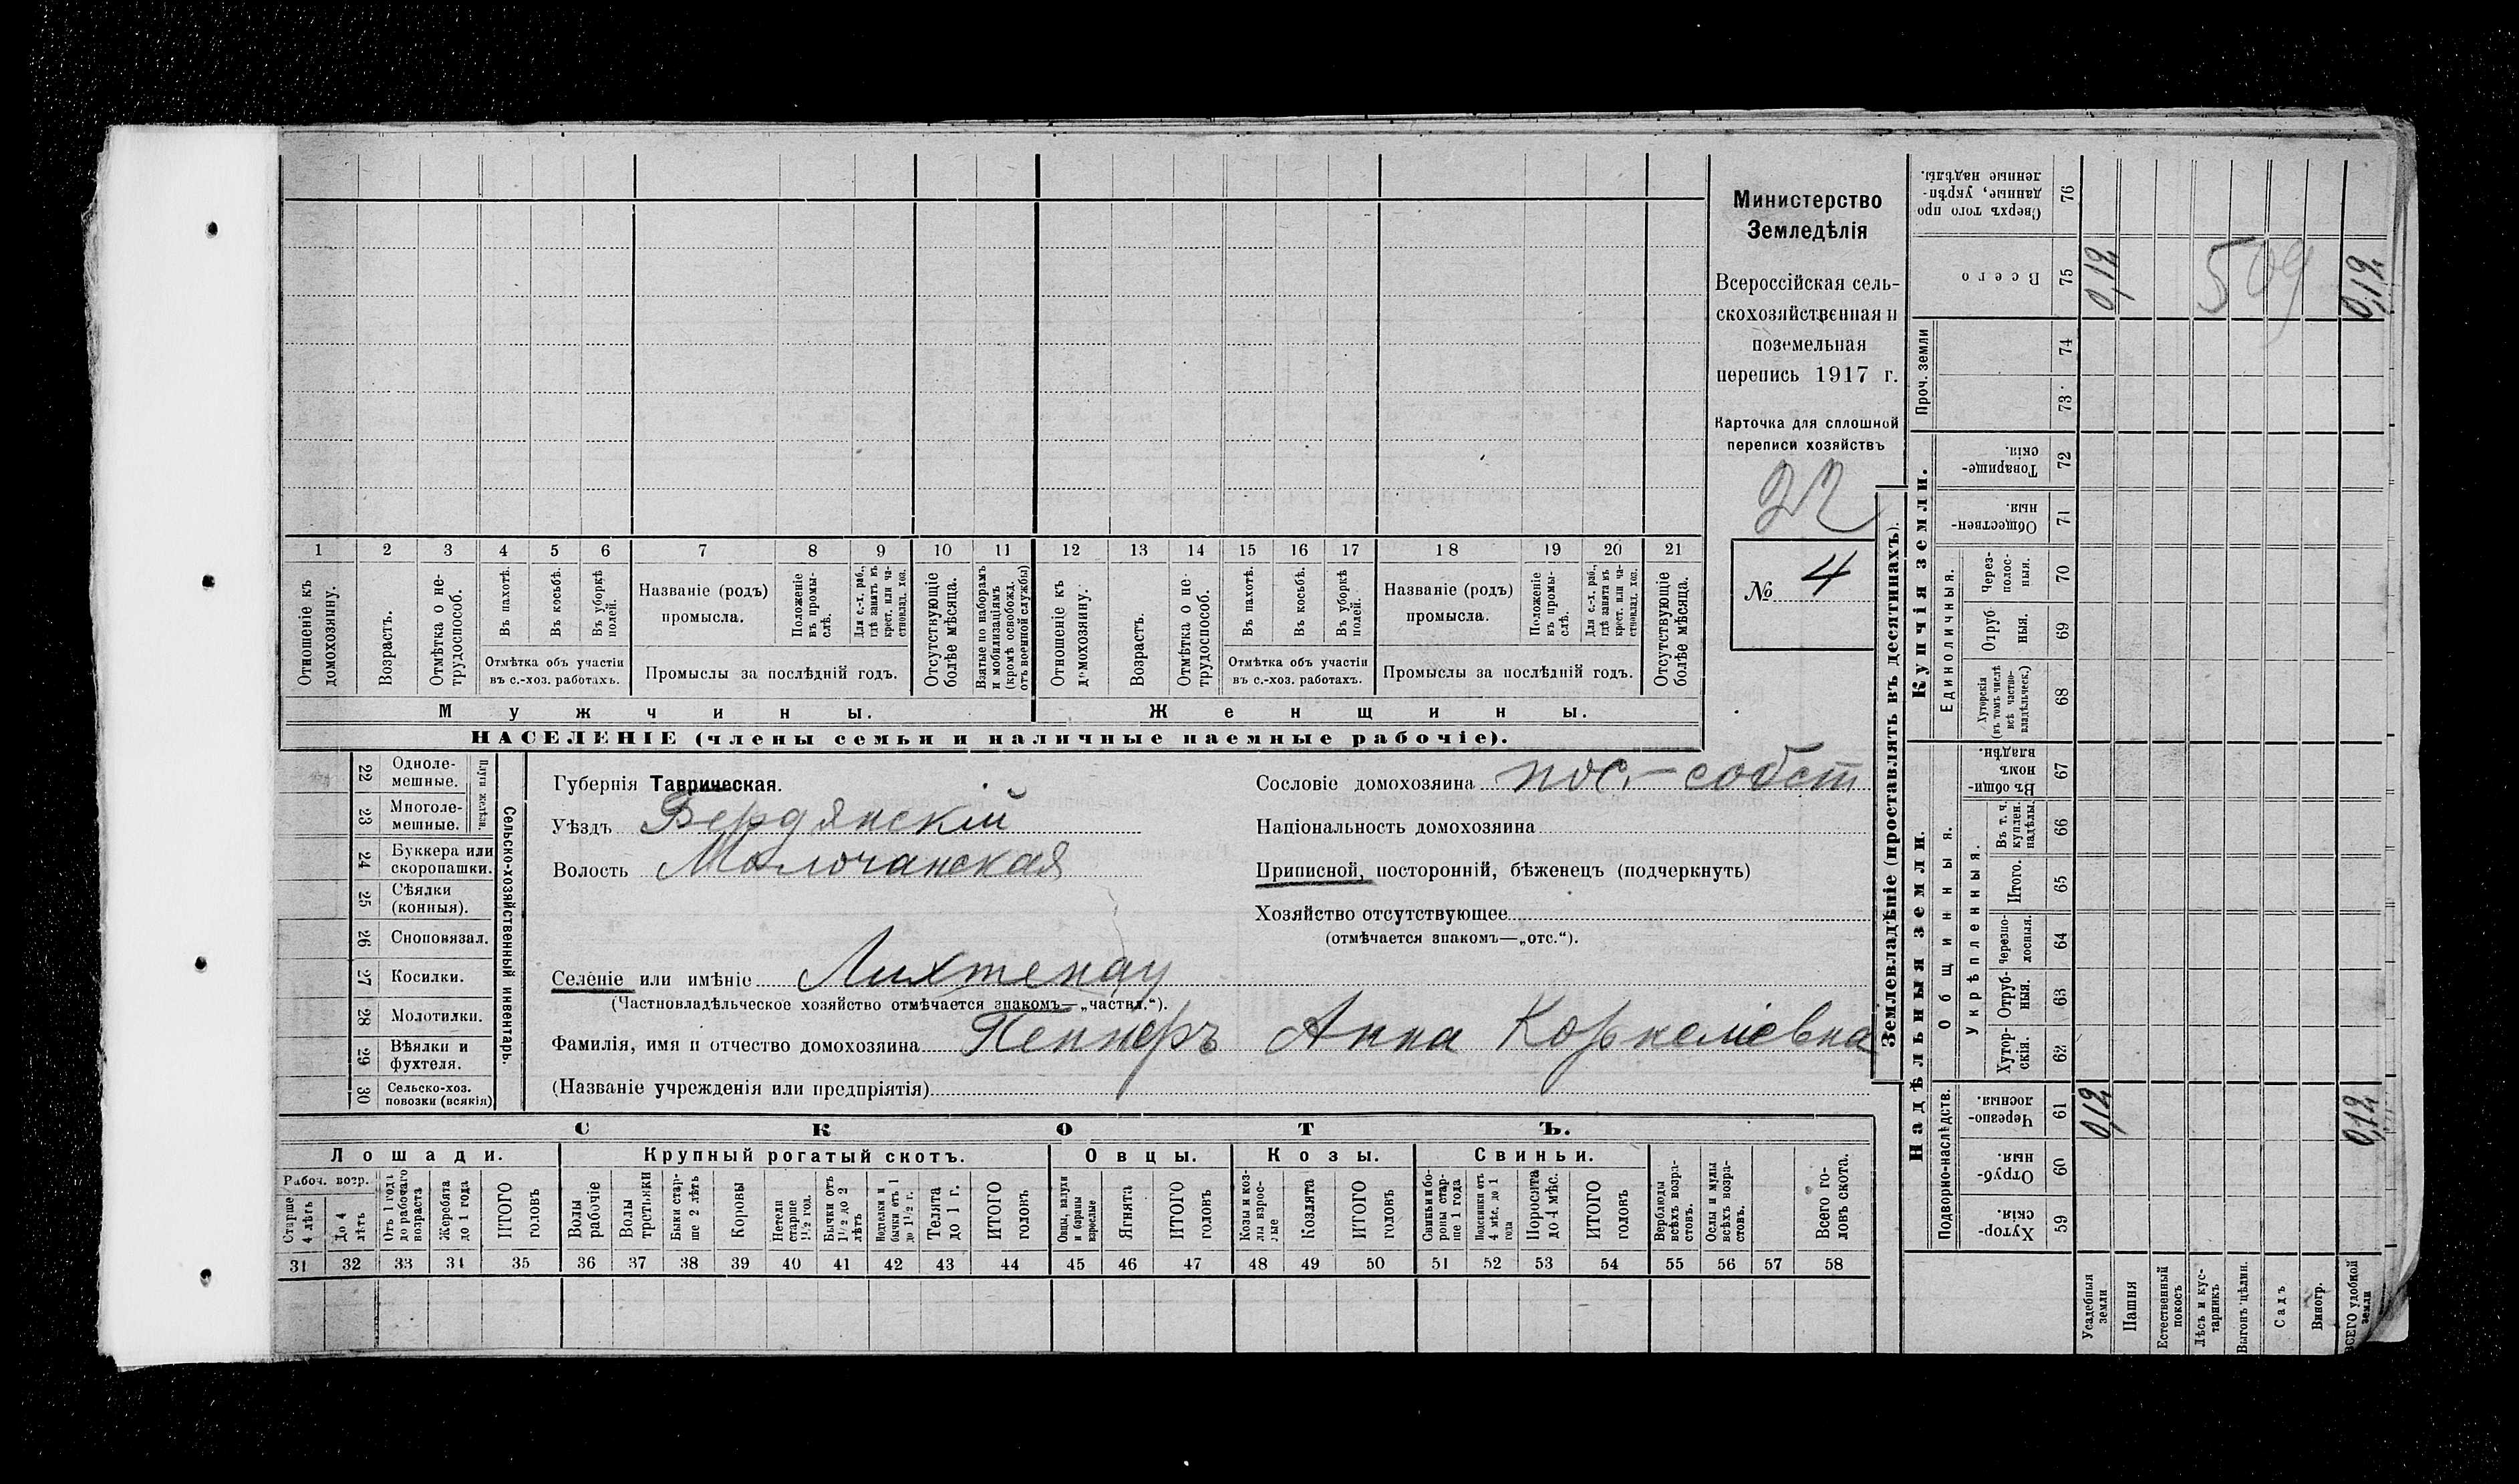 Министерство
Земледѣлія
Всероссійская сель-
скохозяйственная и
поземельная
перепись 1917 г.
Карточка для сплошной
переписи хозяйствъ
22
№ 4
1 2 3 4 5 6 7 8 9 10 11 12 13 14 15 16 17 18 19 20 21
Отношеніе къ домохозяину.
Возрастъ.
Отмѣтка о не-трудоспособ.
Въ пахотѣ.
Въ косьбѣ.
Въ уборкѣ полей.
Отмѣтка объ участіи въ с.-хоз. работахъ.
Названіе (родъ) промысла.
Положеніе въ промы-слѣ.
Для с.-х. раб., гдѣ занятъ въ крест. или ча-стновлад. хоз.
Промыслы за послѣдній годъ.
Отсутствующіе болѣе мѣсяца.
Взятые по наборамъ и мобилизаціямъ (кромѣ освобожд. отъ военной службы)
Отношеніе къ домохозяину.
Возрастъ.
Отмѣтка о не-трудоспособ.
Въ пахотѣ.
Въ косьбѣ.
Въ уборкѣ полей.
Отмѣтка объ участіи въ с.-хоз. работахъ.
Названіе (родъ) промысла.
Положеніе въ промы-слѣ.
Для с.-х. раб., гдѣ занята въ крест. или ча-стновлад. хоз.
Промыслы за послѣдній годъ.
Отсутствующіе болѣе мѣсяца.
Мужчины. Женщины.
НАСЕЛЕНІЕ (члены семьи и наличные наемные рабочіе).
22 Одноле-мешные.
23 Многоле-мешные.
Плуги желѣзн.
24 Буккера или скоропашки.
25 Сѣялки (конныя).
26 Сноповязал.
27 Косилки.
28 Молотилки.
29 Вѣялки и фухтеля.
30 Сельско-хоз. повозки (всякія)
Сельско-хозяйственный инвентарь.
Губернія Таврическая.
Уѣздъ Бердянскій
Волость Молочанская
Сословіе домохозяина пос.-собст
Національность домохозяина
Приписной, посторонній, бѣженецъ (подчеркнуть)
Хозяйство отсутствующее
(отмѣчается знакомъ—„отс.“).
Селеніе или имѣніе Лихтенау
(Частновладѣльческое хозяйство отмѣчается знакомъ—„частвл.“).
Фамилія, имя и отчество домохозяина Пеннеръ Анна Корнеліевна
(Названіе учрежденія или предпріятія)
СКОТЪ.
Лошади. Крупный рогатый скотъ. Овцы. Козы. Свиньи.
Рабоч. возр.
Старше 4 лѣтъ
До 4 лѣтъ
Отъ 1 года до рабочаго возраста
Жеребята до 1 года
ИТОГО головъ
Волы рабочіе
Волы третьяки
Быки стар-ше 2 лѣтъ
Коровы
Нетели старше 1½ год.
Бычки отъ 1½ до 2 лѣтъ
Нетелки и бычки отъ 1 до 1½ г.
Телята до 1 г.
ИТОГО головъ
Овцы, валухи и бараны взрослые
Ягнята
ИТОГО головъ
Козы и коз-лы взрос-лые
Козлята
ИТОГО головъ
Свиньи и бо-ровы стар-ше 1 года
Подсвинки отъ 4 мѣс. до 1 года
Поросята до 4 мѣс.
ИТОГО головъ
Верблюды всѣхъ возра-стовъ.
Ослы и мулы всѣхъ возра-стовъ.
Всего го-ловъ скота.
31 32 33 34 35 36 37 38 39 40 41 42 43 44 45 46 47 48 49 50 51 52 53 54 55 56 57 58
Землевладѣніе (проставлять въ десятинахъ).
Надѣльныя земли.
Купчія земли.
Проч. земли
Подворно-наслѣдств.
Общинныя.
Укрѣпленныя.
Единоличныя.
Хутор-скія. 59
Отруб-ныя. 60
Черезпо-лосныя. 61
Хутор-скія. 62
Отруб-ныя. 63
Черезпо-лосныя. 64
Итого. 65
Въ т. ч. куплен. надѣлы. 66
Въ общи-номъ владѣн. 67
Хуторскія (въ томъ числѣ всѣ частно-владѣльческ.) 68
Отруб ныя. 69
Через-полос-ныя. 70
Обществен-ныя. 71
Товарище-скія. 72
73
74
Всего 75
Сверхъ того про данные, укрѣп-ленные надѣлы. 76
Усадебныя земли 0,12 0,12
Пашня
Естественный покосъ
Лѣсъ и кус-тарникъ
Выгонъ цѣлин.
Садъ
Виногр.
ВСЕГО удобной земли 0,12 0,12
509